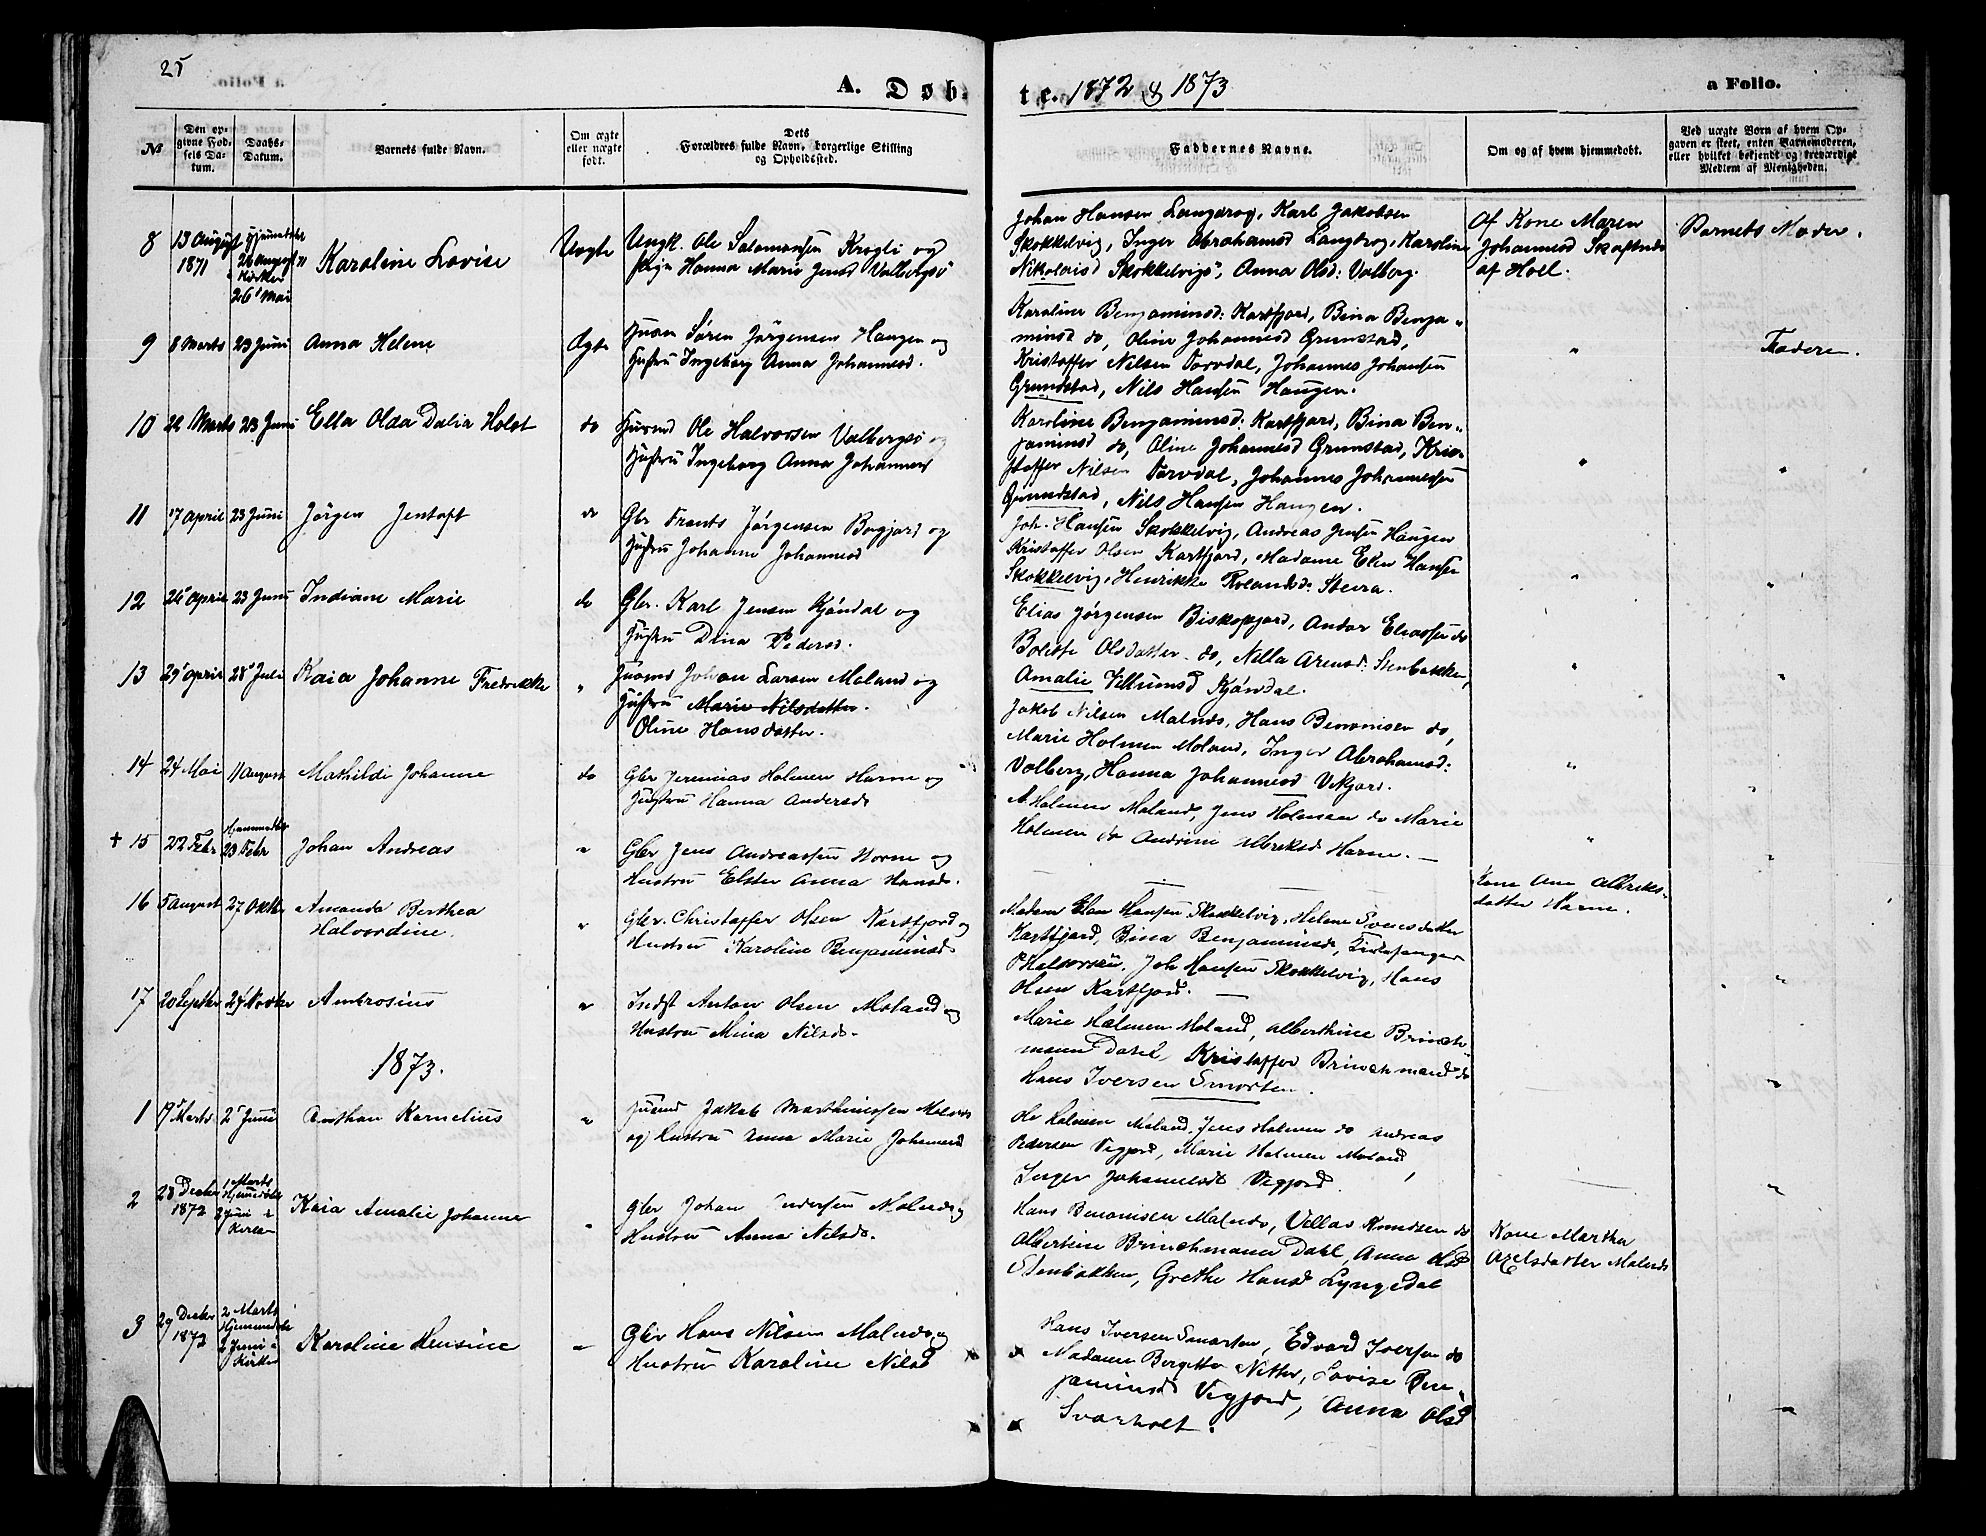 25
A. Døb-
te. 1872 & 1873
a Folio.
№
Den op-
givne Fød-
sels Da-
tum.
Daabs-
Datum.
Barnets fulde Navn.
Om ægte
eller uægte
født.
Dets
Forældres fulde Navn, borgerlige Stilling
og Opholdssted.
Faddernes Navne.
Om og af hvem hjemmedøbt.
Ved uægte Born af hvem Op-
gaven er skeet, enten Barnemoderen,
eller hvilket bekjendt og troværdigt
Medlem af Menigheden.
8
13 August
1871
Hjemmedøbt
26 August
Kirken
26 Mai
Karoline Lovise
Uægte
Ungk. Ole Salamonsen Krogli og
Pige Hanna Marie Jensd Valbergsö
Johan Hansen Langdrag, Karl Jakobsen
Skokkelvig, Inger Abrahamsd Langdrag, Karoline
Nikolaisd Skokkelvig, Anna Olsd: Valberg.
Af Kone Maren
Johannesd Skaftnes
af Hoel.
Barnets Moder.
9
8 Marts
23 Juni
Anna Helene
Ægte
Søren Jørgensen Haugen og
Hustru Ingeborg Anna Johannesd.
Karoline Benjaminsd: Kartfjord, Bina Benja-
minsd do, Oline Johannesd Grunstad,
Kristoffer Nilsen Torvdal, Johannes Johansen
Grundstad, Nils Hansen Haugen.
"
Faderen.
10
22 Marts
23 Juni
Ella Olda Dalia Holst
do
Ole Halvorsen Valbergsö og
Hustru Ingeborg Anna Johannesd
Karoline Benjaminsd: Kartfjord, Bina Ben-
jaminsd do, Oline Johannesd Grunstad, Kris-
toffer Nilsen Torvdal, Johannes Johannessen
Grundstad, Nils Hansen Haugen.
"
"
11
17 April
23 Juni
Jørgen Jentoft
do
Gbr Frants Jørgensen Bøgjord og
Hustru Johanne Johannesd
Joh. Hansen Skokkelvig, Andreas Jensen Haugen
Kristoffer Olsen Kartfjord, Madame Elen Hansen
Skokkelvig, Henrikke Rolandsd: Steira.
"
"
12
26 April
23 Juni
Indiane Marie
do
Gbr. Karl Jensen Kjøndal og
Hustru Dina Pedersd.
Elias Jørgensen Biskopjord, Andor Eliassen do
Bolette Olsdatter do, Nella Arensd: Stenbakken,
Amalie Villumsd Kjøndal.
"
"
13
29 April
28 Juli
Kaia Johanne Fredrikke
"
Johan Larsen Moland og
Hustru Marie Nilsdatter.
Oline Hansdatter.
Jakob Nilsen Malnes, Hans Benonisen do,
Marie Holmen Moland, Inger Abrahamsd:
Valberg, Hanna Johannesd Vikjord.
"
"
14
24 Mai
11 August
Mathilde Johanne
do
Gbr Jeremias Holmen Harne og
Hustru Hanna Andersd.
A. Holmen Moland, Jens Holmen do Marie
Holmen do Andrine Albriksd Harne. —
"
"
+ 15
22 Febr
Hjemmedøbt
23 Febr
Johan Andreas
"
Gbr Jens Andreassen Horne og
Hustru Elster Anna Hansd.
Kone Ane Albriks-
datter Harne.
16
5 August
27 Oktbr
Amanda Berthea
Halvordine.
"
Gbr. Christoffer Olsen Kartfjord og
Hustru Karoline Benjaminsd.
Madam Elen Hansen Skokkelvig, Helene Svensdatter
Kartfjord, Bina Benjaminsd, Kirkesanger
P Halvorsen, Joh Hansen Skokkelvig, Hans
Olsen Kartfjord. —
"
17
20 Septbr
24 Novbr
Ambrosius
"
Indst Anton Olsen Moland og
Hustru Mina Nilsd.
Marie Holmen Moland, Alberthine Brinch-
mann Dahl, Kristoffer Brinchmand do
Hans Iversen Smorten.
"
1873.
1
19 Marts
2 Juni
Anthon Kornelius
"
Jakob Marthinussen Malnes
og Hustru Anna Marie Johannesd
Ole Holmen Moland, Jens Holmen do Andreas
Pedersen Vegjord, Marie Holmen Moland,
Inger Johannesd Vegjord.
"
2
28 Decbr
1872
1 Marts
Hjemmedøbt
2 Juni i
Kirken
Kaia Amalie Johanne
"
Gbr Johan Andersen Malnes og
Hustru Anna Nilsd.
Hans Benonisen Malnes, Villas Knudsen do
Albertine Brinchmann Dahl, Anne Olsd
Stenbakken, Grethe Hansd Lyngedal
Kone Martha
Axelsdatter Malnes
3
29 Decbr
1872
2 Marts
Hjemmedøbt
2 Juni i
Kirken
Karoline Hensine
"
Gbr Hans Nilsen Malnes og
Hustru Karoline Nilsd
Hans Iversen Smorten, Edvard Iversen do
Madame Bergitte Nitter, Lovise Ben-
jaminsd Vegjord, Anna Olsd
Svarholt.
"